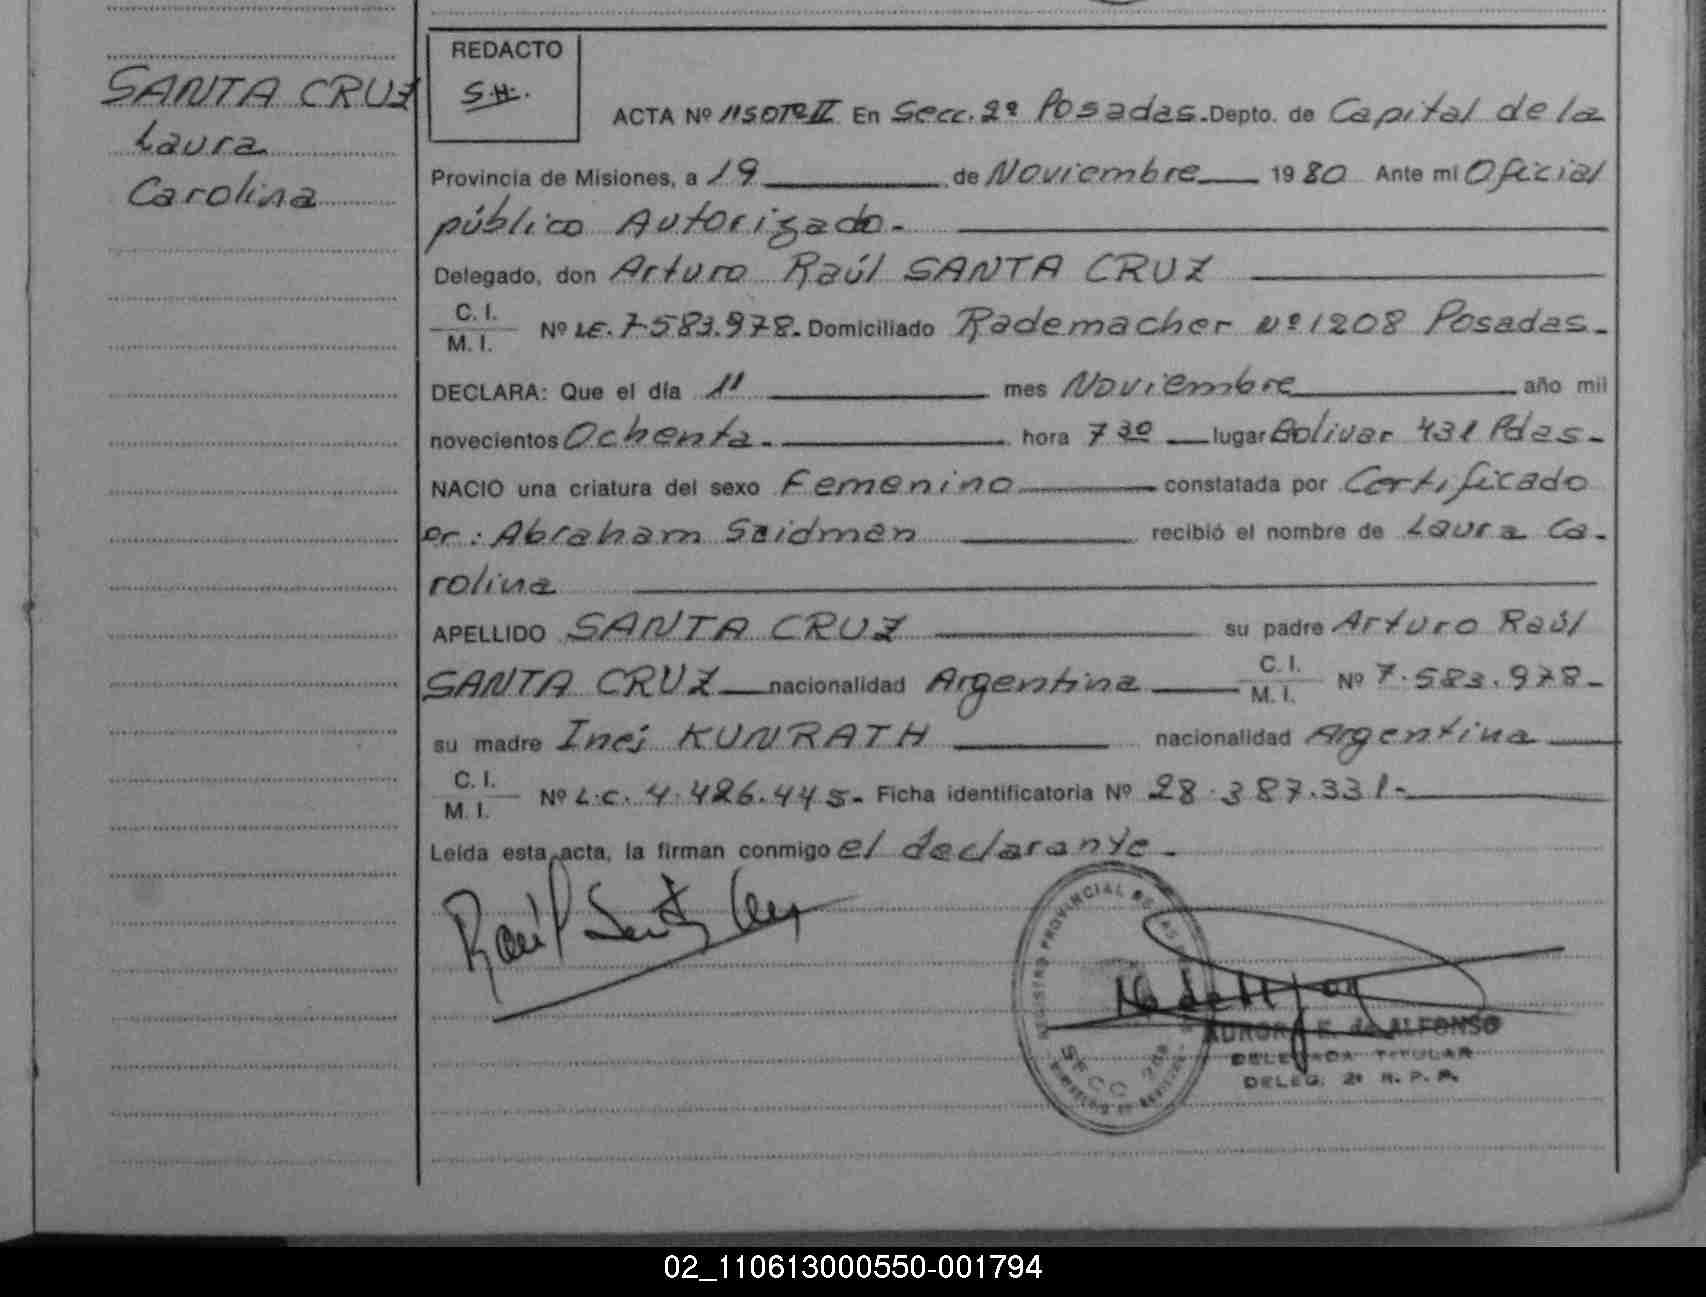 SANTA CRUZ
Laura
Carolina
REDACTO
S.H.
ACTA Nº 1150 Tº II En Secc. 2ª Posadas. Depto. de Capital de la
Provincia de Misiones, a 19 de Noviembre 1980 Ante mi Oficial
público Autorizado.
Delegado, don Arturo Raúl SANTA CRUZ
C. I.
M. I. Nº LE. 7.583.978. Domiciliado Rademacher Nº 1208 Posadas.
DECLARA: Que el día 11 mes Noviembre año mil
novecientos Ochenta. hora 7 30 lugar Bolivar 431 Pdas.
NACIO una criatura del sexo Femenino constatada por Certificado
Dr: Abraham Saidman recibió el nombre de Laura Ca-
rolina
APELLIDO SANTA CRUZ su padre Arturo Raúl
SANTA CRUZ nacionalidad Argentina C. I. M. I. Nº 7.583.978.
su madre Inés KUNRATH nacionalidad Argentina
C. I.
M. I. Nº L.C. 4.426.445. Ficha identificatoria Nº 28.387.331.
Leída esta acta, la firman conmigo el declarante.
Raúl Santa Cruz
REGISTRO PROVINCIAL DE LAS
SECC 2da
AURORA F. de ALFONSO
DELEGADA TITULAR
DELEG. 2ª R. P. P.
02_110613000550-001794